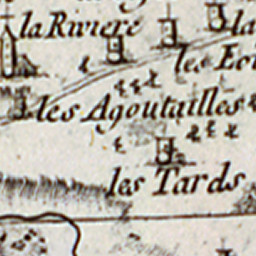 la Riviere
la
les
les Agoutailles
les Tards